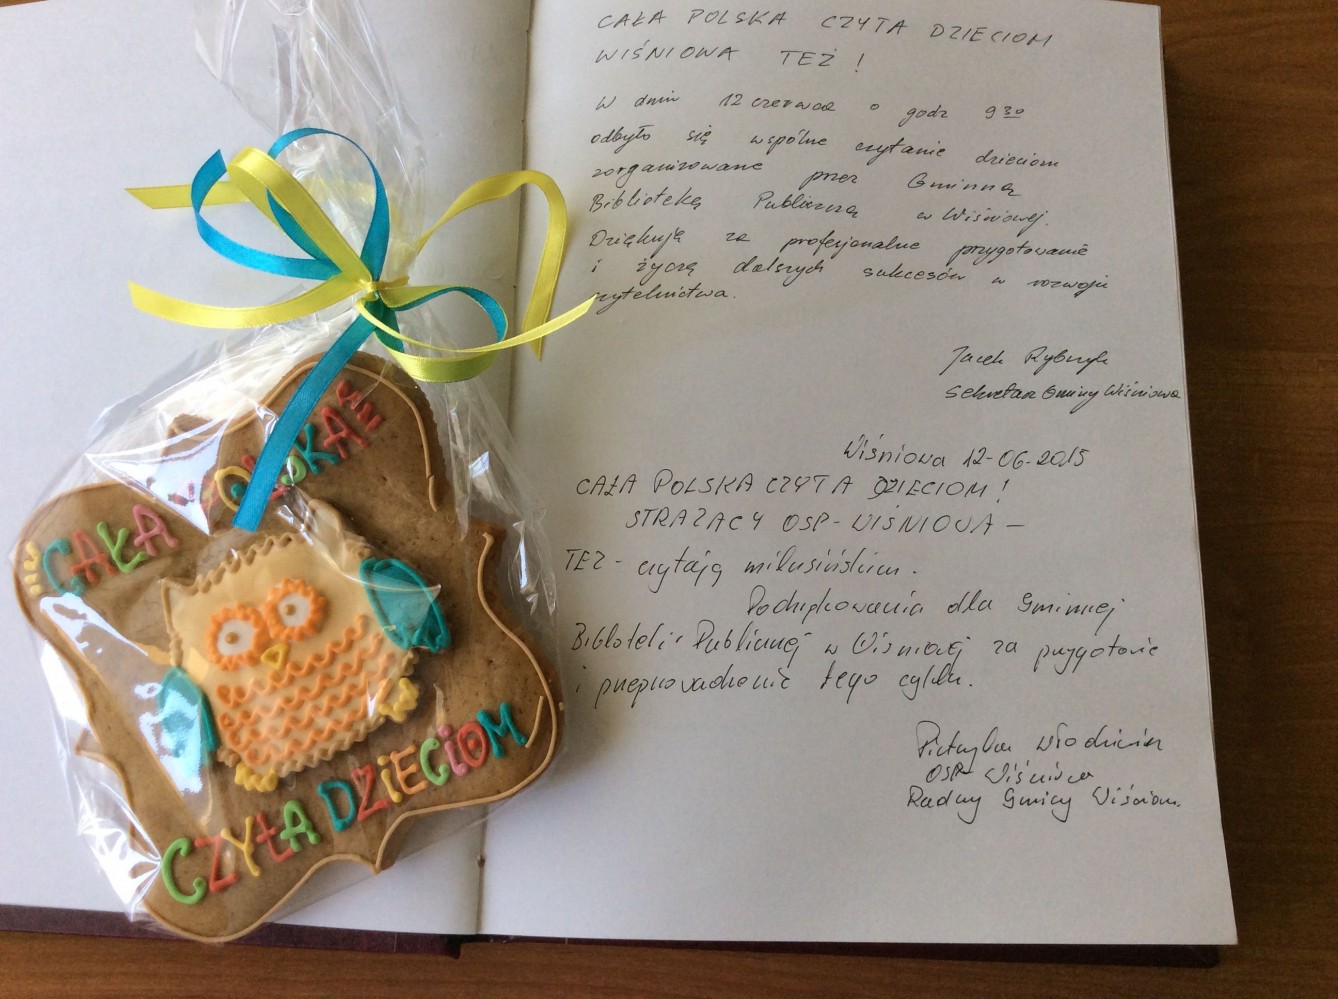 CAŁA POLSKA CZYTA DZIECIOM
WIŚNIOWA TEŻ !
W dniu 12 czerwca o godz 9 30
odbyło się wspólne czytanie dzieciom
zorganizowane przez Gminną
Bibliotekę Publiczną w Wiśniowej.
Dziękuję za profesjonalne przygotowanie
i życzę dalszych sukcesów w rozwoju
czytelnictwa.
Jacek Rybczyk
Sekretarz Gminy Wiśniowa
Wiśniowa 12-06-2015
CAŁA POLSKA CZYTA DZIECIOM !
STRAŻACY OSP - WIŚNIOWA -
TEŻ - czytają milusińskim.
Podziękowania dla Gminnej
Biblioteki Publicznej w Wiśniowej za przygotowanie
i przeprowadzenie tego cyklu.
Włodzimierz
OSP Wiśniowa
Radny Gminy Wiśniowa
CAŁA POLSKA
CZYTA DZIECIOM